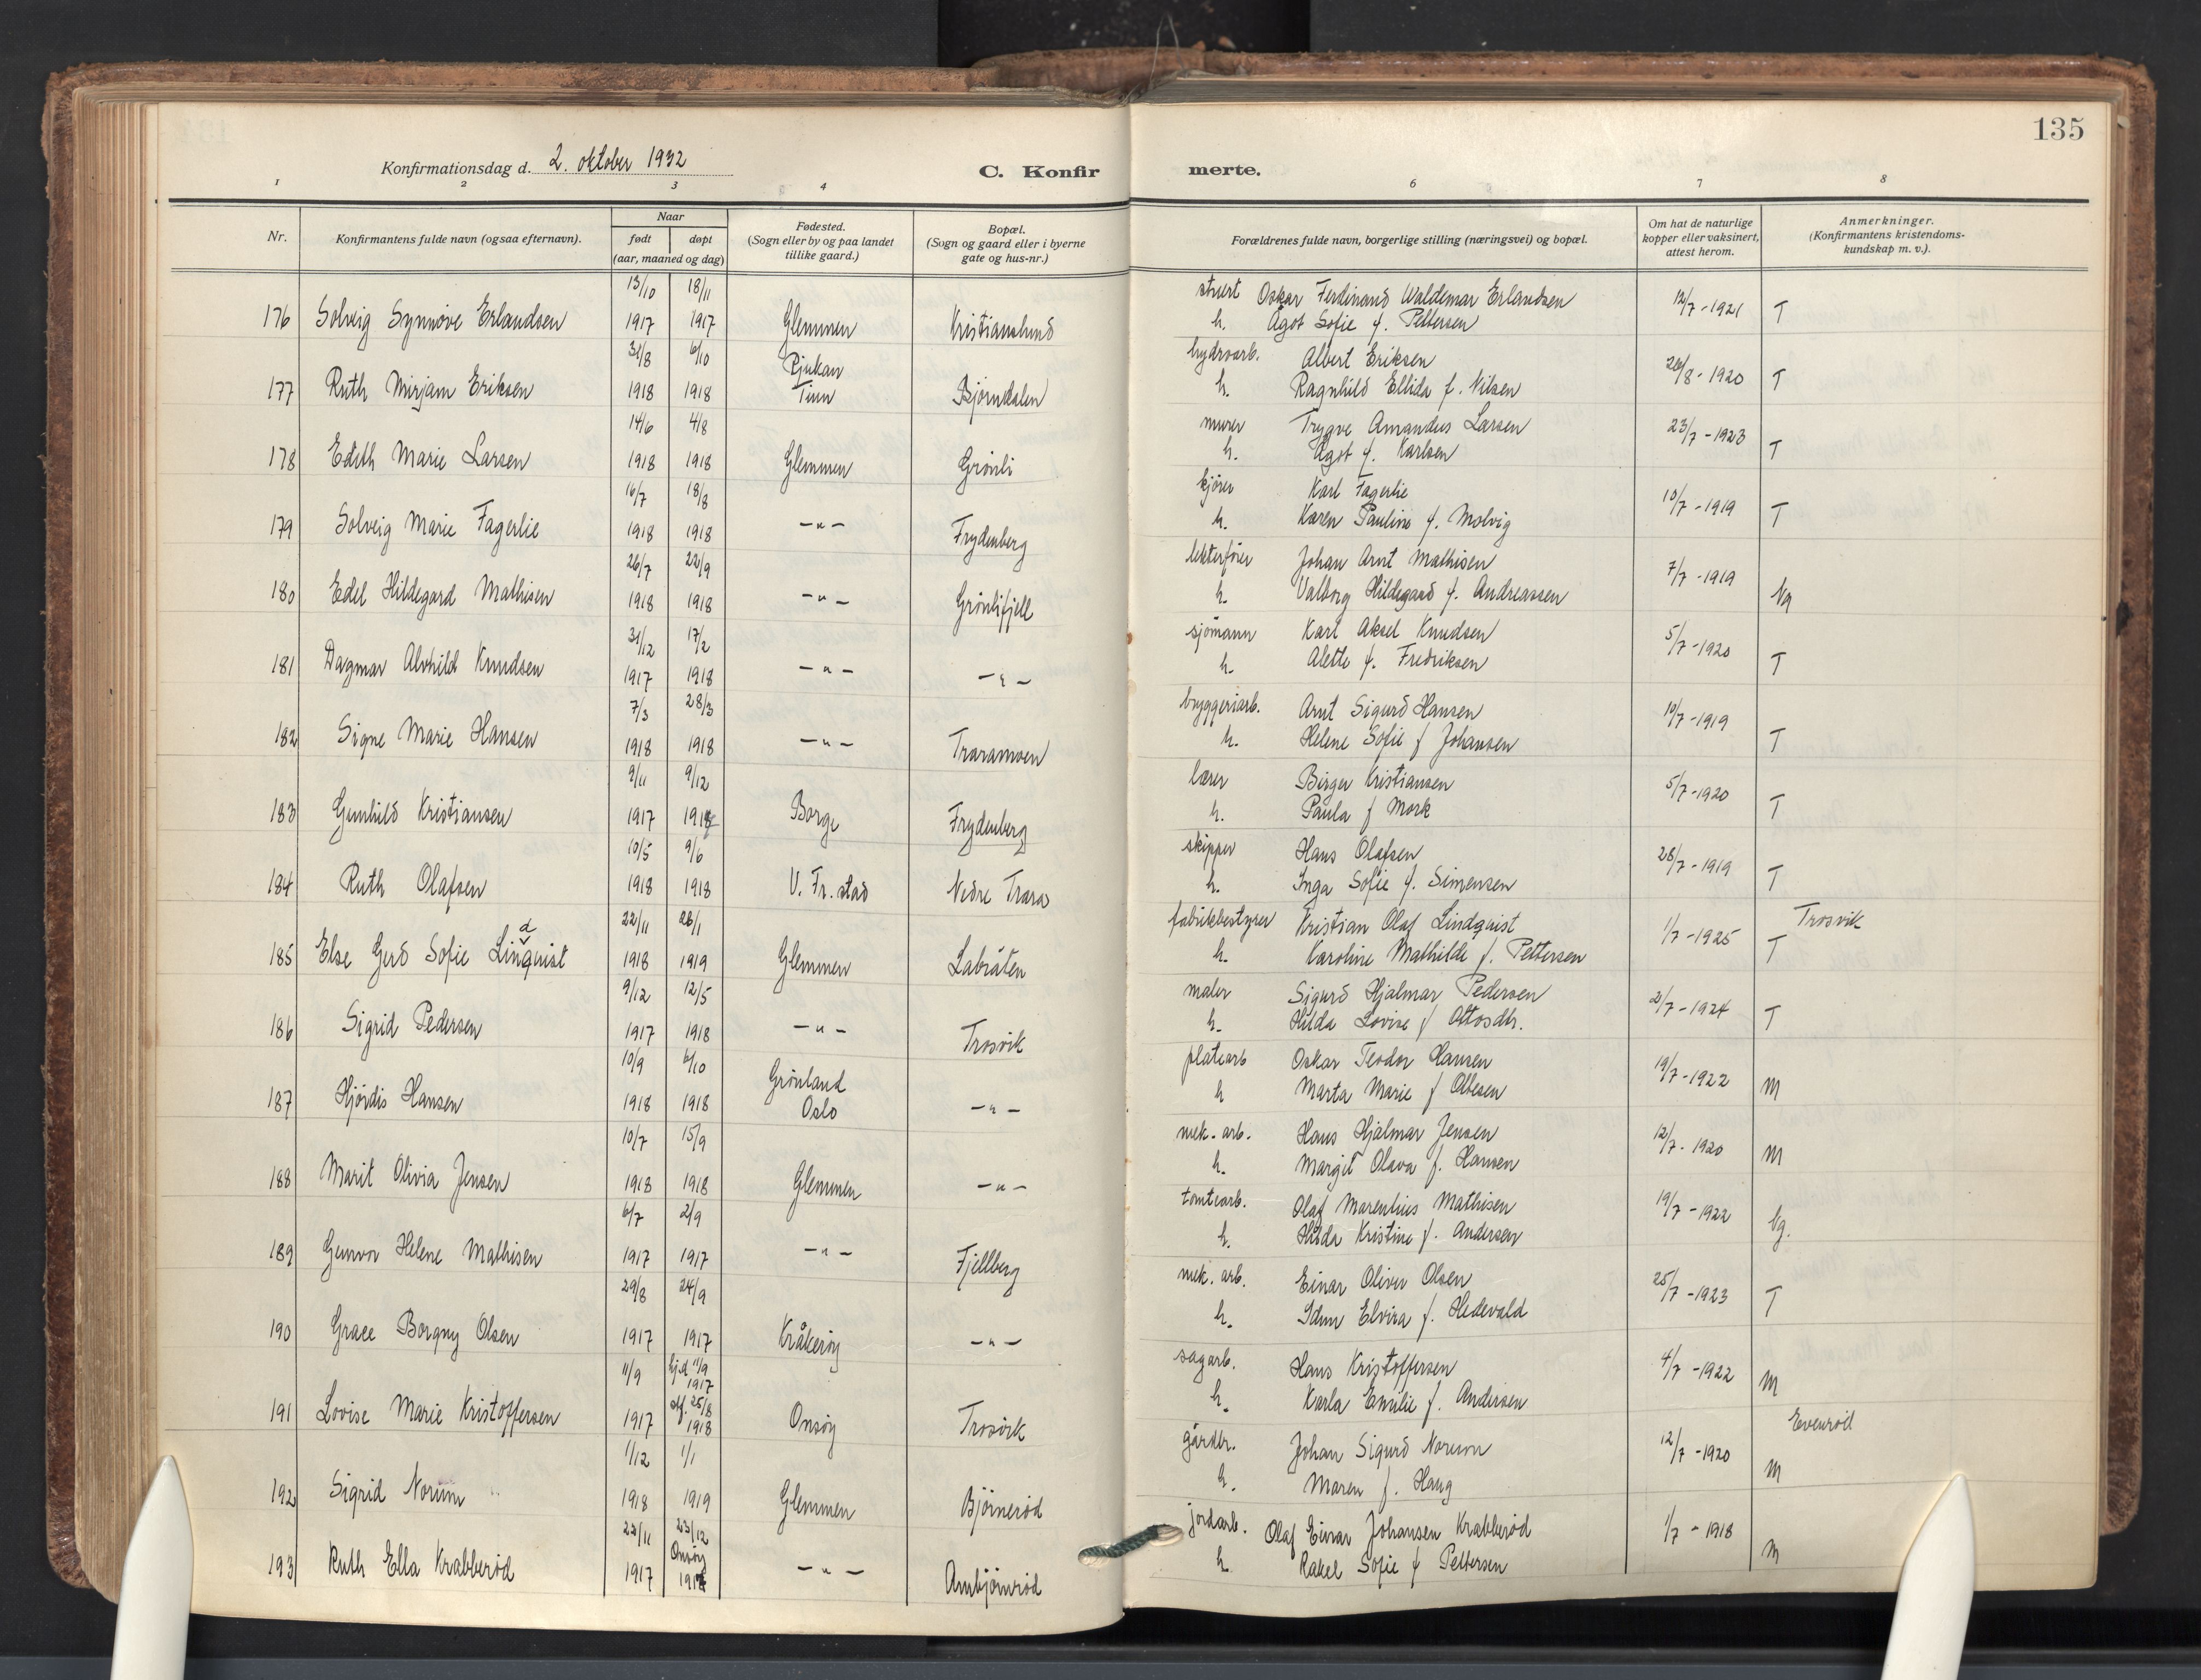 135
Konfirmationsdag d. 2. oktober 1932
C. Konfirmerte.
1 2 3 4 6 7 8
Nr.
Konfirmantens fulde navn (ogsaa efternavn).
Naar
født døpt
(aar, maaned og dag)
Fødested.
(Sogn eller by og paa landet
tillike gaard.)
Bopæl.
(Sogn og gaard eller i byerne
gate og hus-nr.)
Forældrenes fulde navn, borgerlige stilling (næringsvei) og bopæl.
Om hat de naturlige
kopper eller vaksinert,
attest herom.
Anmerkninger.
(Konfirmantens kristendoms-
kundskap m. v.).
13/10 18/11 stuert Oskar Ferdinand Waldemar Erlandsen 12/7-1921 T
176 Solveig Synnøve Erlandsen 1917 1917 Glemmen Kristianslund h. Ågot Sofie f. Pettersen
31/8 6/10 Rjukan hydroarb. Albert Eriksen 26/8-1920 T
177 Ruth Mirjam Eriksen 1918 1918 Tinn Bjørndalen h. Ragnhild Ellida f. Nilsen
14/6 4/8 murer Trygve Amandus Larsen 23/7-1923 T
178 Edith Marie Larsen 1918 1918 Glemmen Grønli h. Ågot f. Karlsen
16/7 18/8 kjører Karl Fagerlie 10/7-1919 T
179 Solveig Marie Fagerlie 1918 1918 -"- Frydenberg h. Karen Pauline f. Molvig
26/7 22/9 lekterfører Johan Arnt Mathisen 7/7-1919 Ng
180 Edel Hildegard Mathisen 1918 1918 -"- Grønlifjell h. Valborg Hildegard f. Andreassen
31/12 17/2 sjømann Karl Aksel Knudsen 5/7-1920 T
181 Dagmar Alvhild Knudsen 1917 1918 -"- -"- h. Alette f. Fredriksen
7/3 28/3 bryggeriarb. Arnt Sigurd Hansen 10/7-1919 T
182 Signe Marie Hansen 1918 1918 -"- Traramoen h. Helene Sofie f Johansen
9/11 9/12 lærer Birger Kristiansen 5/7-1920 T
183 Gunhild Kristiansen 1917 1917 Borge Frydenberg h. Paula f Mork
10/5 9/6 skipper Hans Olafsen 28/7-1919 T
184 Ruth Olafsen 1918 1918 V. Fr.stad Nedre Trara h. Inga Sofie f. Simensen
22/11 26/1 fabrikkbestyrer Kristian Olaf Lindqvist 1/7-1925 T Trosvik
185 Else Gerd Sofie Lindqvist 1918 1919 Glemmen Labråten h. Karoline Mathilde f. Pettersen
9/12 12/5 maler Sigurd Hjalmar Pedersen 2/7-1924 T
186 Sigrid Pedersen 1917 1918 -"- Trosvik h. Hilda Lovise f Ottosdtr.
10/9 6/10 Grønland platearb Oskar Teodor Hansen 19/7-1922 M
187 Hjørdis Hansen 1918 1918 Oslo -"- h Marta Marie f Olbesen
10/7 15/9 mek. arb. Hans Hjalmar Jensen 12/7-1920 M
188 Marit Olivia Jensen 1918 1918 Glemmen -"- h. Margit Olava f. Hansen
6/7 2/9 tomtearb. Olaf Marentius Mathisen 19/7-1922 Ng.
189 Gunvor Helene Mathisen 1917 1917 -"- Fjellberg h. Hilda Kristine f. Andersen
29/8 24/9 mek. arb. Einar Oliver Olsen 25/7-1923 T
190 Grace Borgny Olsen 1917 1917 Kråkerøy -"- h. Idun Elvira f. Hedevald
11/9 hj.d 11/9 1917 sagarb. Hans Kristoffersen 4/7-1922 M
191 Lovise Marie Kristoffersen 1917 stf. 25/8 1918 Onsøy Trosvik h. Karla Emilie f. Andersen
1/12 1/1 gårdbr. Johan Sigurd Norum 12/7-1920 M Evenrød
192 Sigrid Norum 1918 1919 Glemmen Bjørnerød h. Maren f. Haug
22/11 23/12 Onsøy jordarb. Olaf Einar Johansen Krabberød 1/7-1918 M
193 Ruth Ella Krabberød 1917 1917 -"- Ambjørnrød h. Rakel Sofie f Pettersen